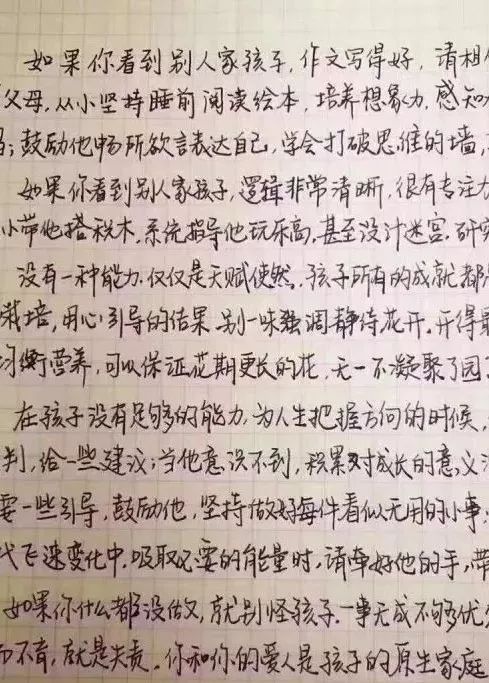 如果你看到别人家孩子，作文写得好，请相
父母，从小坚持睡前阅读绘本，培养想象力，感知
；鼓励他畅所欲言表达自己，学会打破思维的墙，
如果你看到别人家孩子，逻辑非常清晰，很有专注力
小带他搭积木，系统指导他玩乐高，甚至设计迷宫，研究
没有一种能力，仅仅是天赋使然，孩子所有的成就都
栽培，用心引导的结果，别一味强调静待花开。开得最
均衡营养，可以保证花期更长的花，无一不凝聚了园
在孩子没有足够的能力，为人生把握方向的时候，
判，给一些建议；当他意识不到，积累对成长的意义
要一些引导，鼓励他，坚持做好每件看似无用的小事；
代飞速变化中，吸取必要的能量时，请牵好他的手，带
如果你什么都没做又，就别怪孩子，一事无成不够优
而不育，就是失责。你和你的爱人是孩子的原生家庭